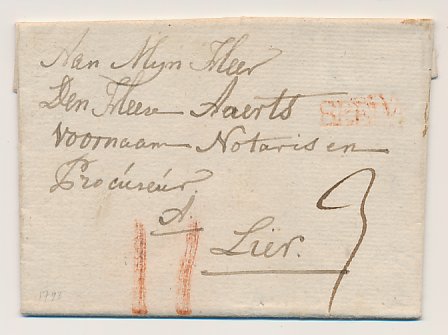 Aan Mijn Heer
Den Heere Aaerts
voornaam Notaris en
Procúreúr.
A.
Lier.
3
1793